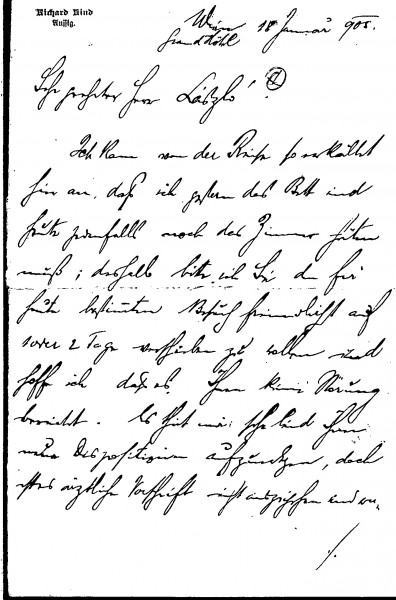 Richard Kind
Aussig.
Wien 18 Januar 905.
Grand Hôtel
Sehr geehrter Herr László!
Ich kam von der Reise so erkältet
hier an, daß ich gestern das Bett und
heute jedenfalls noch das Zimmer hüten
muß; deshalb bitte ich Sie den für
heute bestimmten Besuch freundlichst auf
1 oder 2 Tage verschieben zu wollen und
hoffe ich daß es Ihnen keine Störung
bereitet. Es thut mir sehr leid Ihnen
neue Dispositionen aufzunötigen, doch
ist es ärztliche Vorschrift nicht auszugehen und